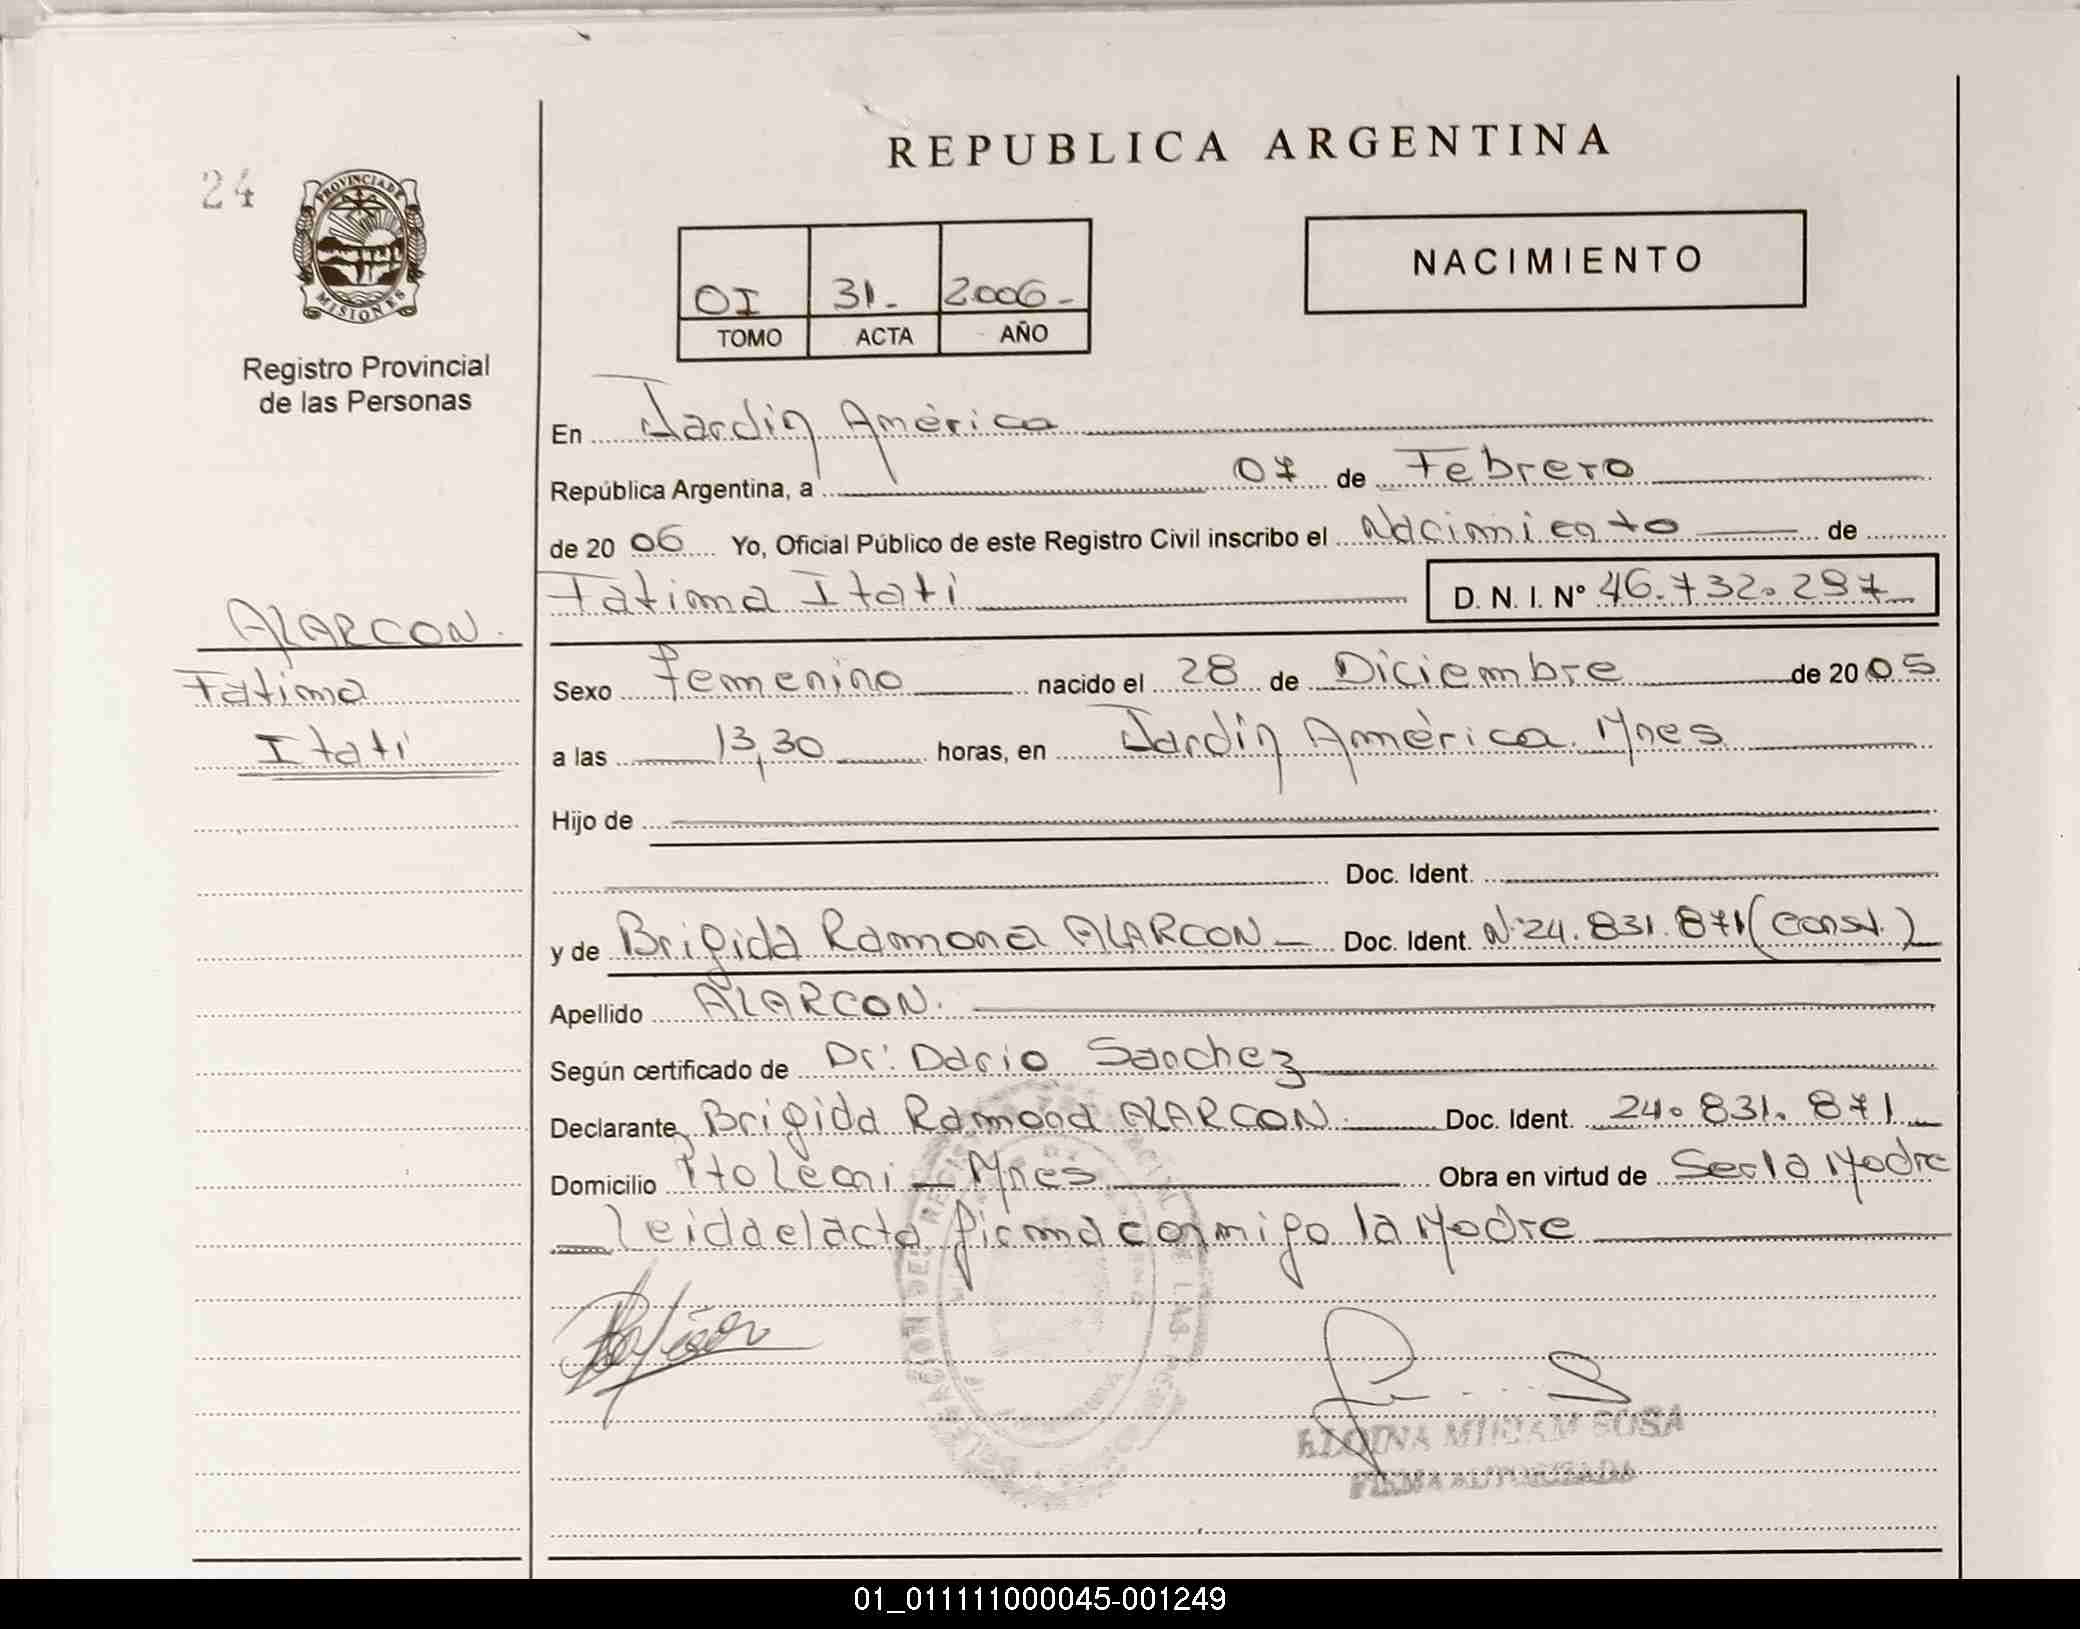 REPUBLICA ARGENTINA
24
PROVINCIA DE
MISIONES
Registro Provincial
de las Personas
NACIMIENTO
OI 31- 2006-
TOMO ACTA AÑO
En Jardín América
República Argentina, a 07 de Febrero
de 2006 Yo, Oficial Público de este Registro Civil inscribo el Nacimiento de
Fátima Itatí D. N. I. Nº 46.732.297
ALARCON.
Fátima
Itatí
Sexo femenino nacido el 28 de Diciembre de 2005
a las 13,30 horas, en Jardín América. Mnes
Hijo de
Doc. Ident.
y de Brígida Ramona ALARCON Doc. Ident. Nº 24.831.871 (const.)
Apellido ALARCON.
Según certificado de Dr: Dario Sanchez
Declarante Brigida Ramona ALARCON. Doc. Ident. 24.831.871
Domicilio - Mnes Obra en virtud de Ser la Madre
leida el acta firma conmigo la Madre
MIRIAM SOSA
FIRMA AUTORIZADA
01_011111000045-001249